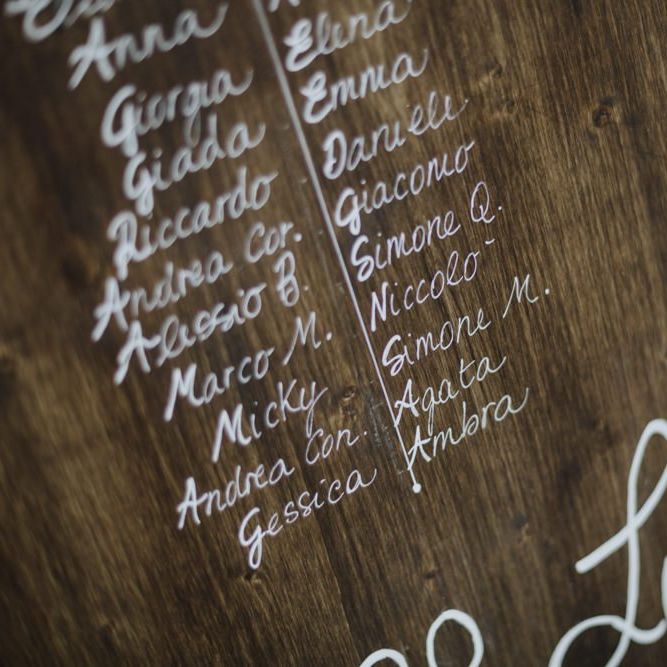 Anna
Giorgia
Giada
Riccardo
Andrea Cor.
Alessio B.
Marco M.
Micky
Andrea Con.
Gessica
Elena
Emma
Daniele
Giacomo
Simone Q.
Niccolò
Simone M.
Agata
Ambra